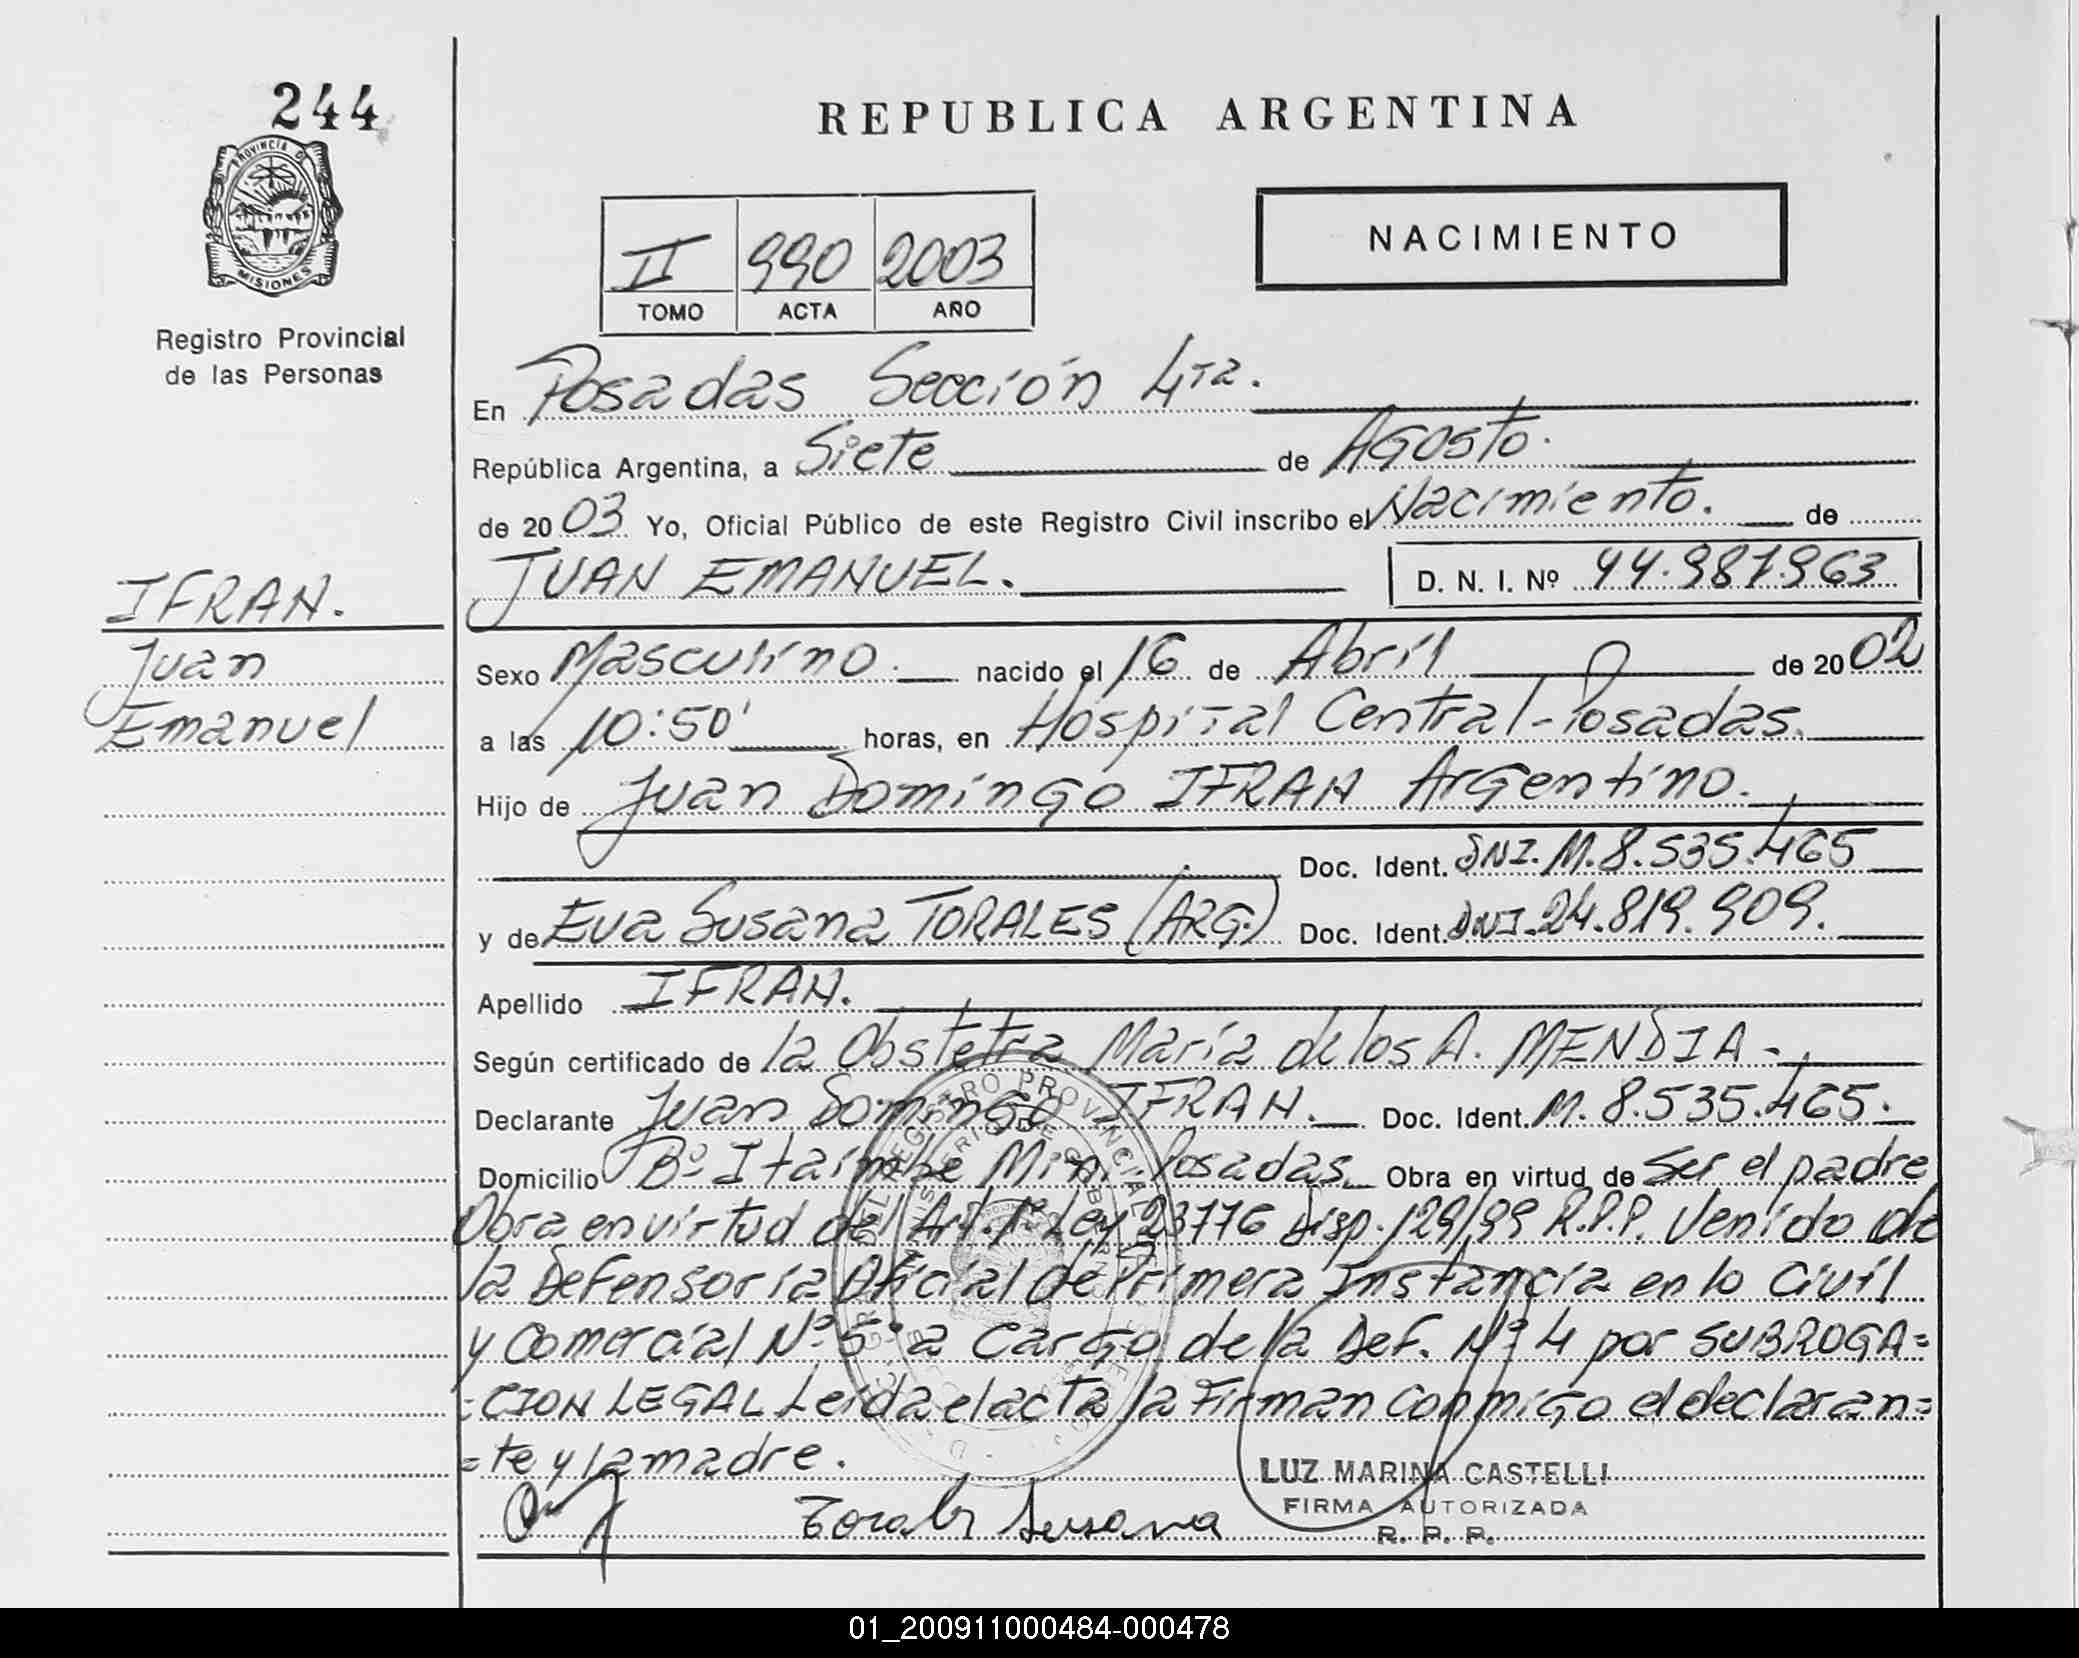 244
PROVINCIA D
MISIONES
Registro Provincial
de las Personas
IFRAN.
Juan
Emanuel
REPUBLICA ARGENTINA
II 990 2003
TOMO ACTA AÑO
NACIMIENTO
En Posadas Sección 4ta.
República Argentina, a Siete de Agosto.
de 2003 Yo, Oficial Público de este Registro Civil inscribo el Nacimiento. de
JUAN EMANUEL. D. N. I. Nº 44.987.963
Sexo Masculino. nacido el 16 de Abril de 2002
a las 10:50' horas, en Hospital Central - Posadas.
Hijo de Juan Domingo IFRAN Argentino.
Doc. Ident. DNI. M. 8.535.465
y de Eva Susana TORALES (ARG.) Doc. Ident. DNI. 24.819.909.
Apellido IFRAN.
Según certificado de la Obstetra María de los A. MENDIA -
Declarante Juan Domingo IFRAN. Doc. Ident. M. 8.535.465.
Domicilio Bº Itaimbe Mini Posadas. Obra en virtud de Ser el padre
Obra en virtud del Art. 1º Ley 23776 Disp. 129/99 R.P.P. Venido de
la Defensoria Oficial de Primera Instancia en lo Civil
y Comercial Nº 5 a Cargo de la Def. Nº 4 por SUBROGA=
=CION LEGAL Leida el acta la Firman Conmigo el declaran=
=te y la madre.
Torales Susana
LUZ MARINA CASTELLI
FIRMA AUTORIZADA
R. P. P.
01_200911000484-000478